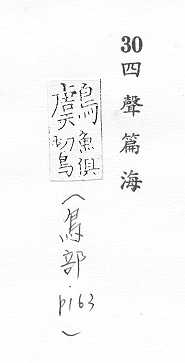 30四聲篇海
鸆魚俱
切鳥
(鳥部.p163)